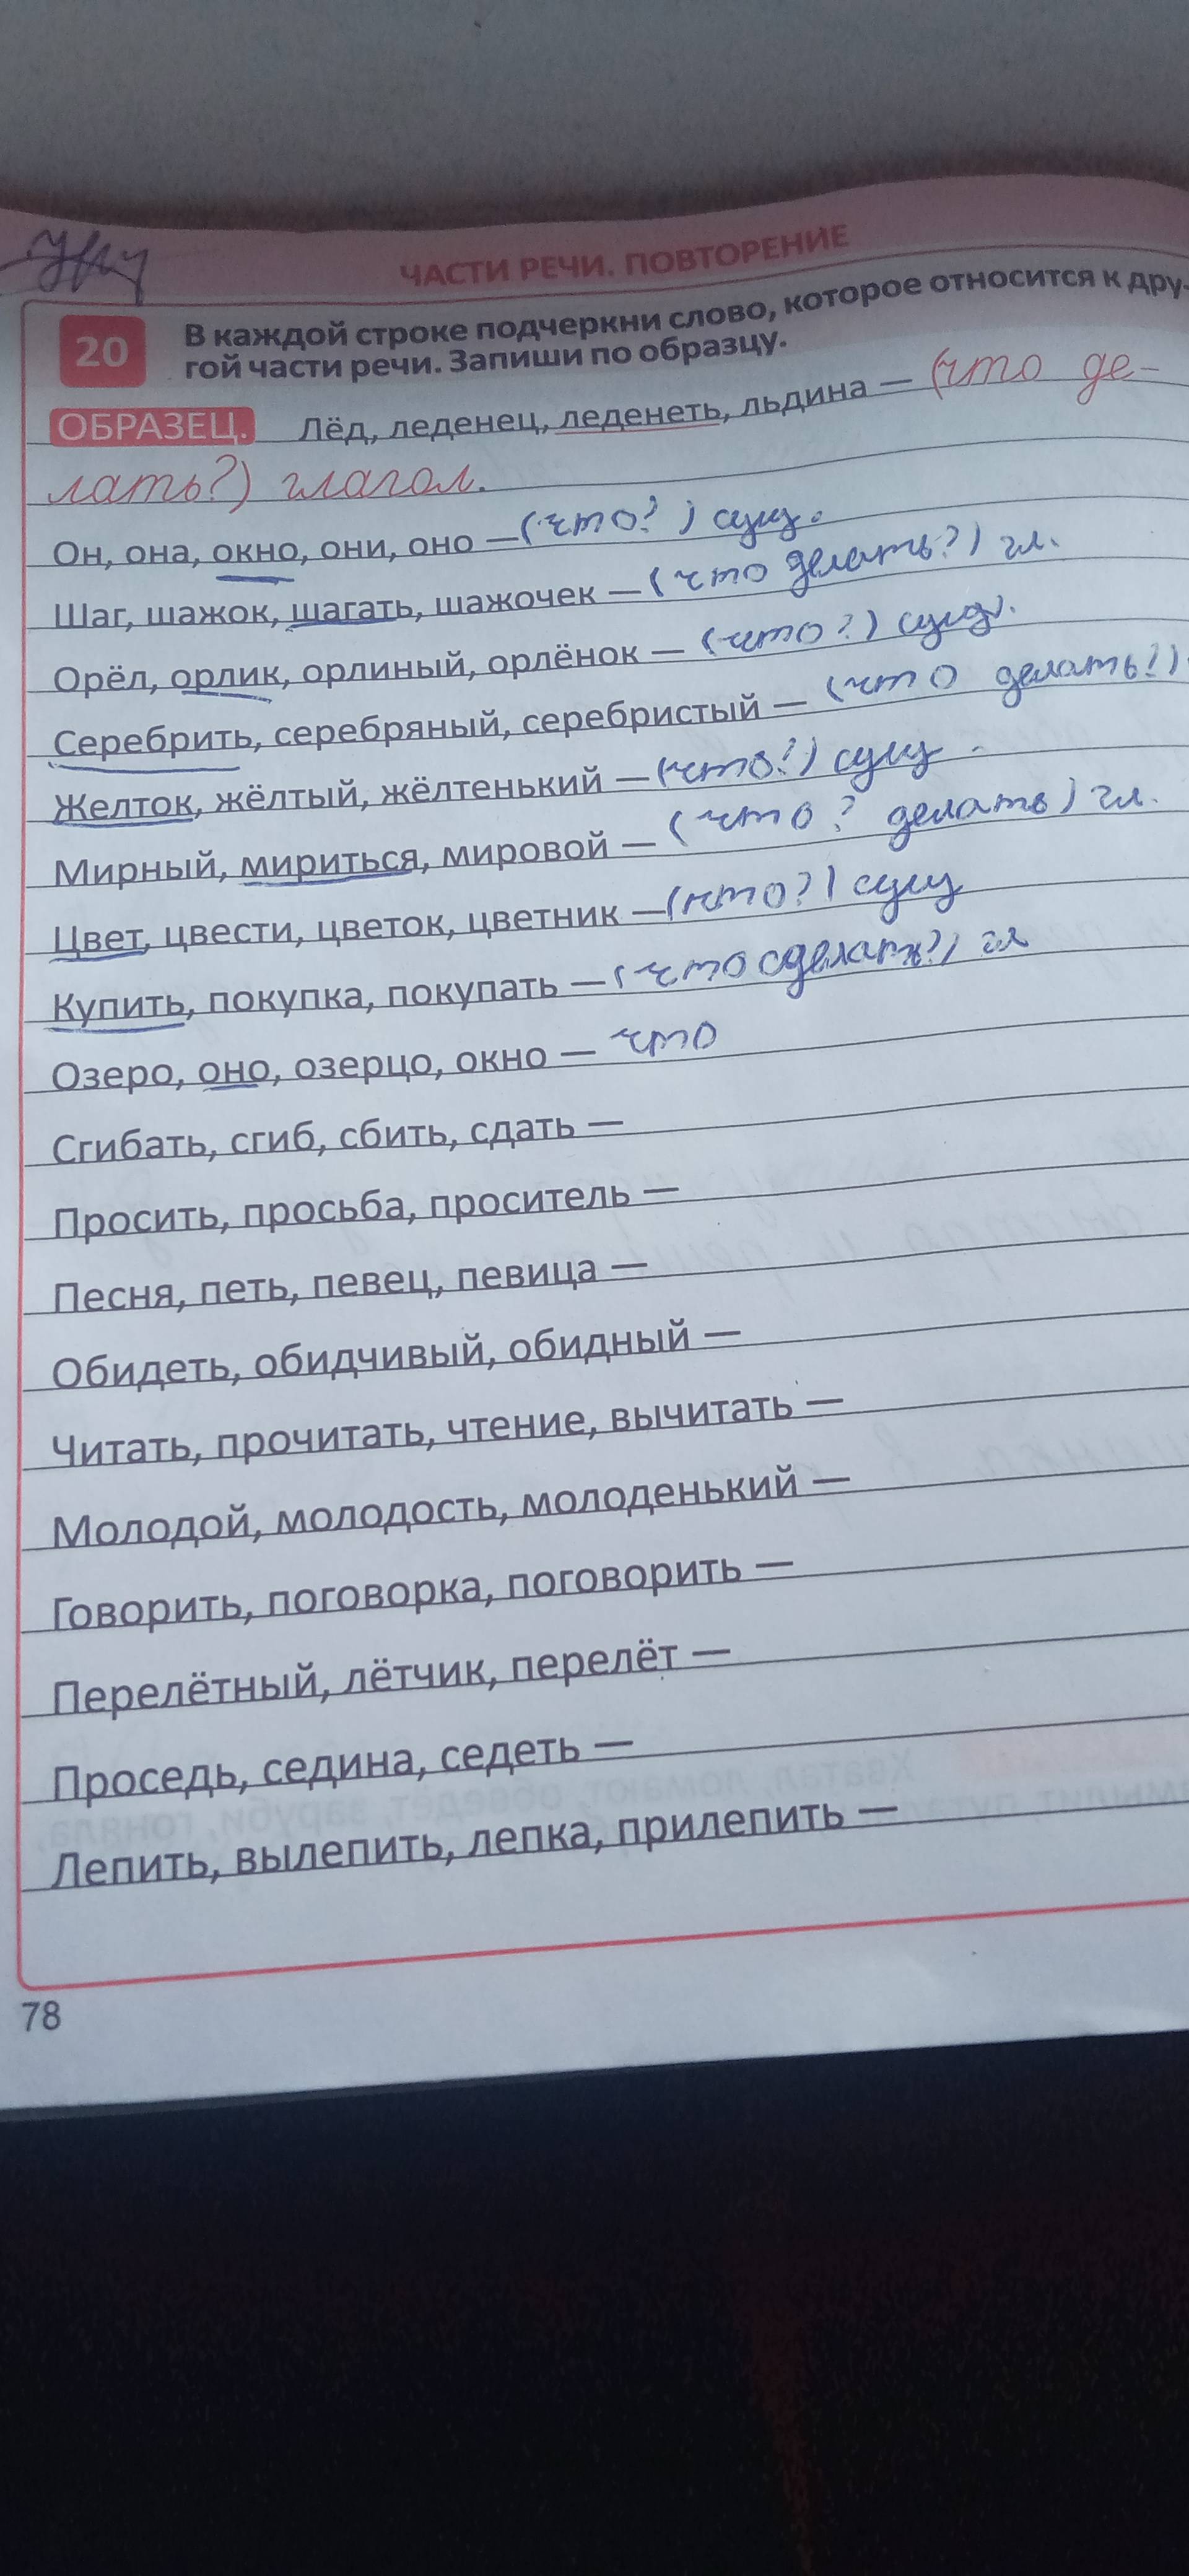 ЧАСТИ РЕЧИ. ПОВТОРЕНИЕ
20 В каждой строке подчеркни слово, которое относится к дру-
гой части речи. Запиши по образцу.
ОБРАЗЕЦ. Лёд, леденец, леденеть, льдина — (что де-
лать?) глагол.
Он, она, окно, они, оно — (что?) сущ.
Шаг, шажок, шагать, шажочек — (что делать?) гл.
Орёл, орлик, орлиный, орлёнок — (что?) сущ.
Серебрить, серебряный, серебристый — (что делать?)
Желток, жёлтый, жёлтенький — (что?) сущ.
Мирный, мириться, мировой — (что? делать) гл.
Цвет, цвести, цветок, цветник — (что?) сущ
Купить, покупка, покупать — (что сделать?) гл
Озеро, оно, озерцо, окно — что
Сгибать, сгиб, сбить, сдать —
Просить, просьба, проситель —
Песня, петь, певец, певица —
Обидеть, обидчивый, обидный —
Читать, прочитать, чтение, вычитать —
Молодой, молодость, молоденький —
Говорить, поговорка, поговорить —
Перелётный, лётчик, перелёт —
Проседь, седина, седеть —
Лепить, вылепить, лепка, прилепить —
78